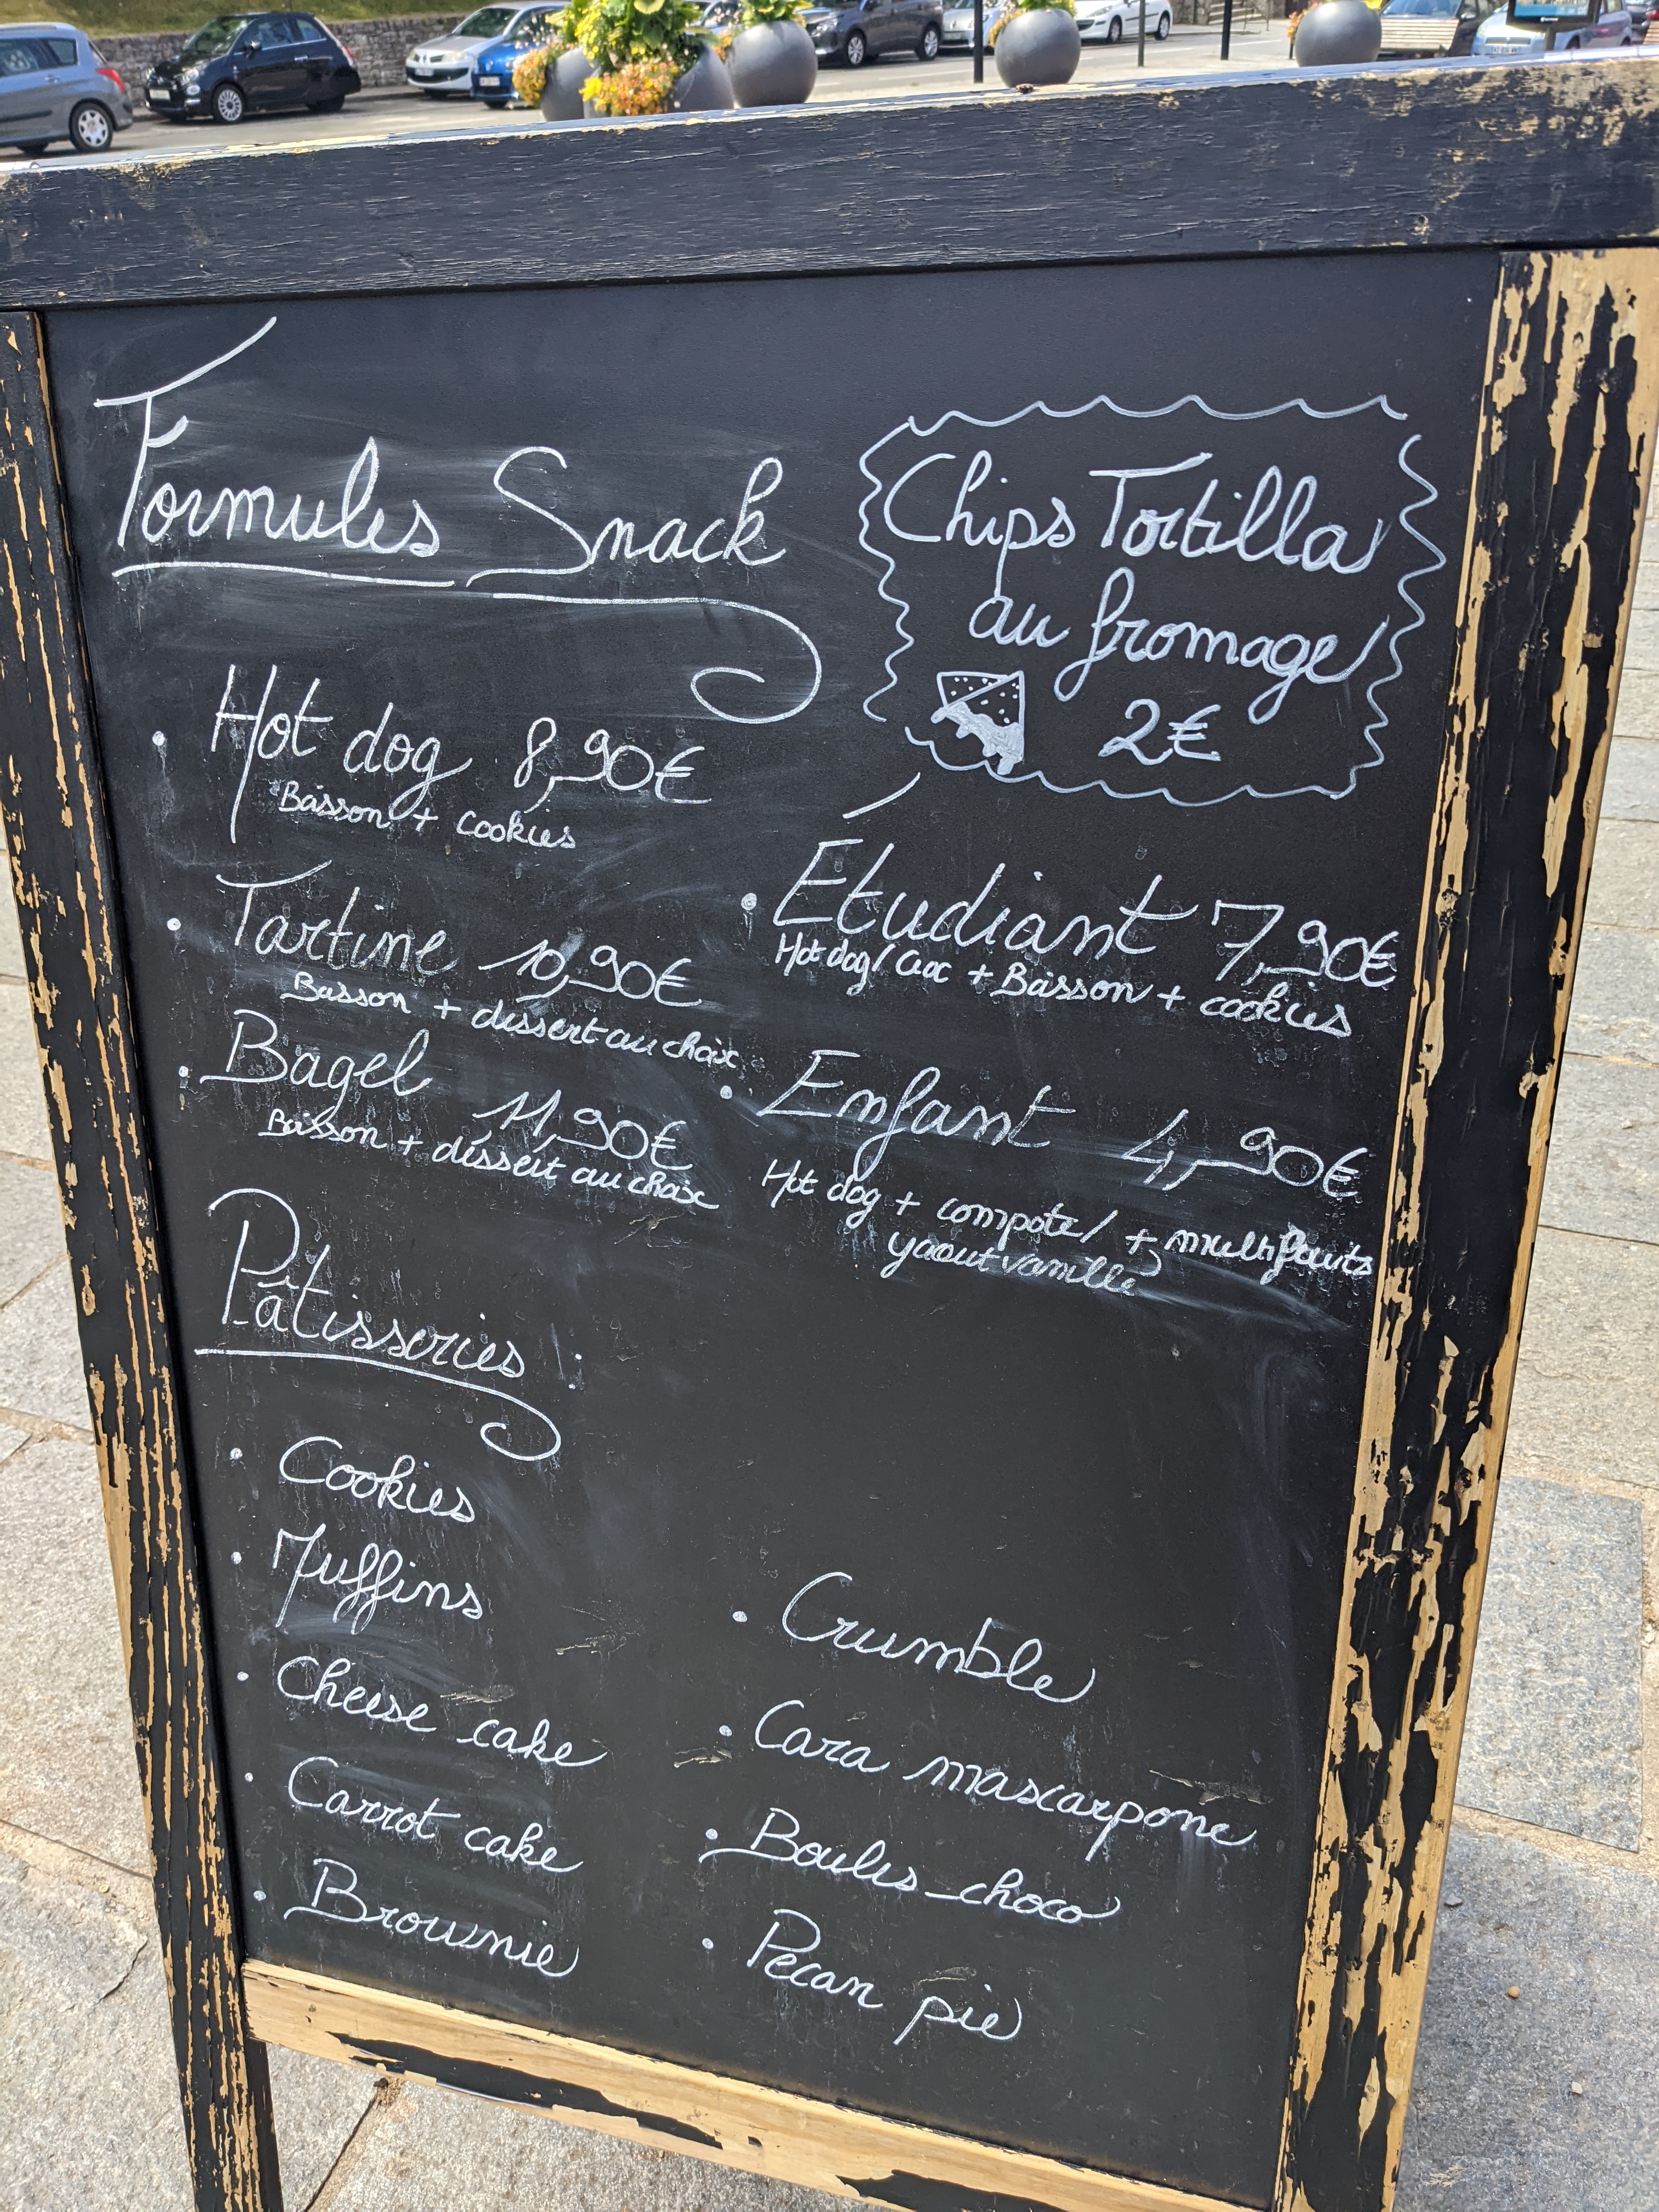 Formules Snack
Chips Tortilla
au fromage
2€
• Hot dog 8,90€
Boisson + cookies
• Tartine 10,90€
Boisson + dessert au choix
• Bagel 11,90€
Boisson + déssert au choix
• Etudiant 7,90€
Hot dog / Croc + Boisson + cookies
• Enfant 4,90€
Hot dog + compote / + multifruits
yaourt vanille
Pâtisseries :
• Cookies
• Muffins
• Cheese cake
• Carrot cake
• Brownie
• Crumble
• Cara mascarpone
• Boules choco
• Pecan pie